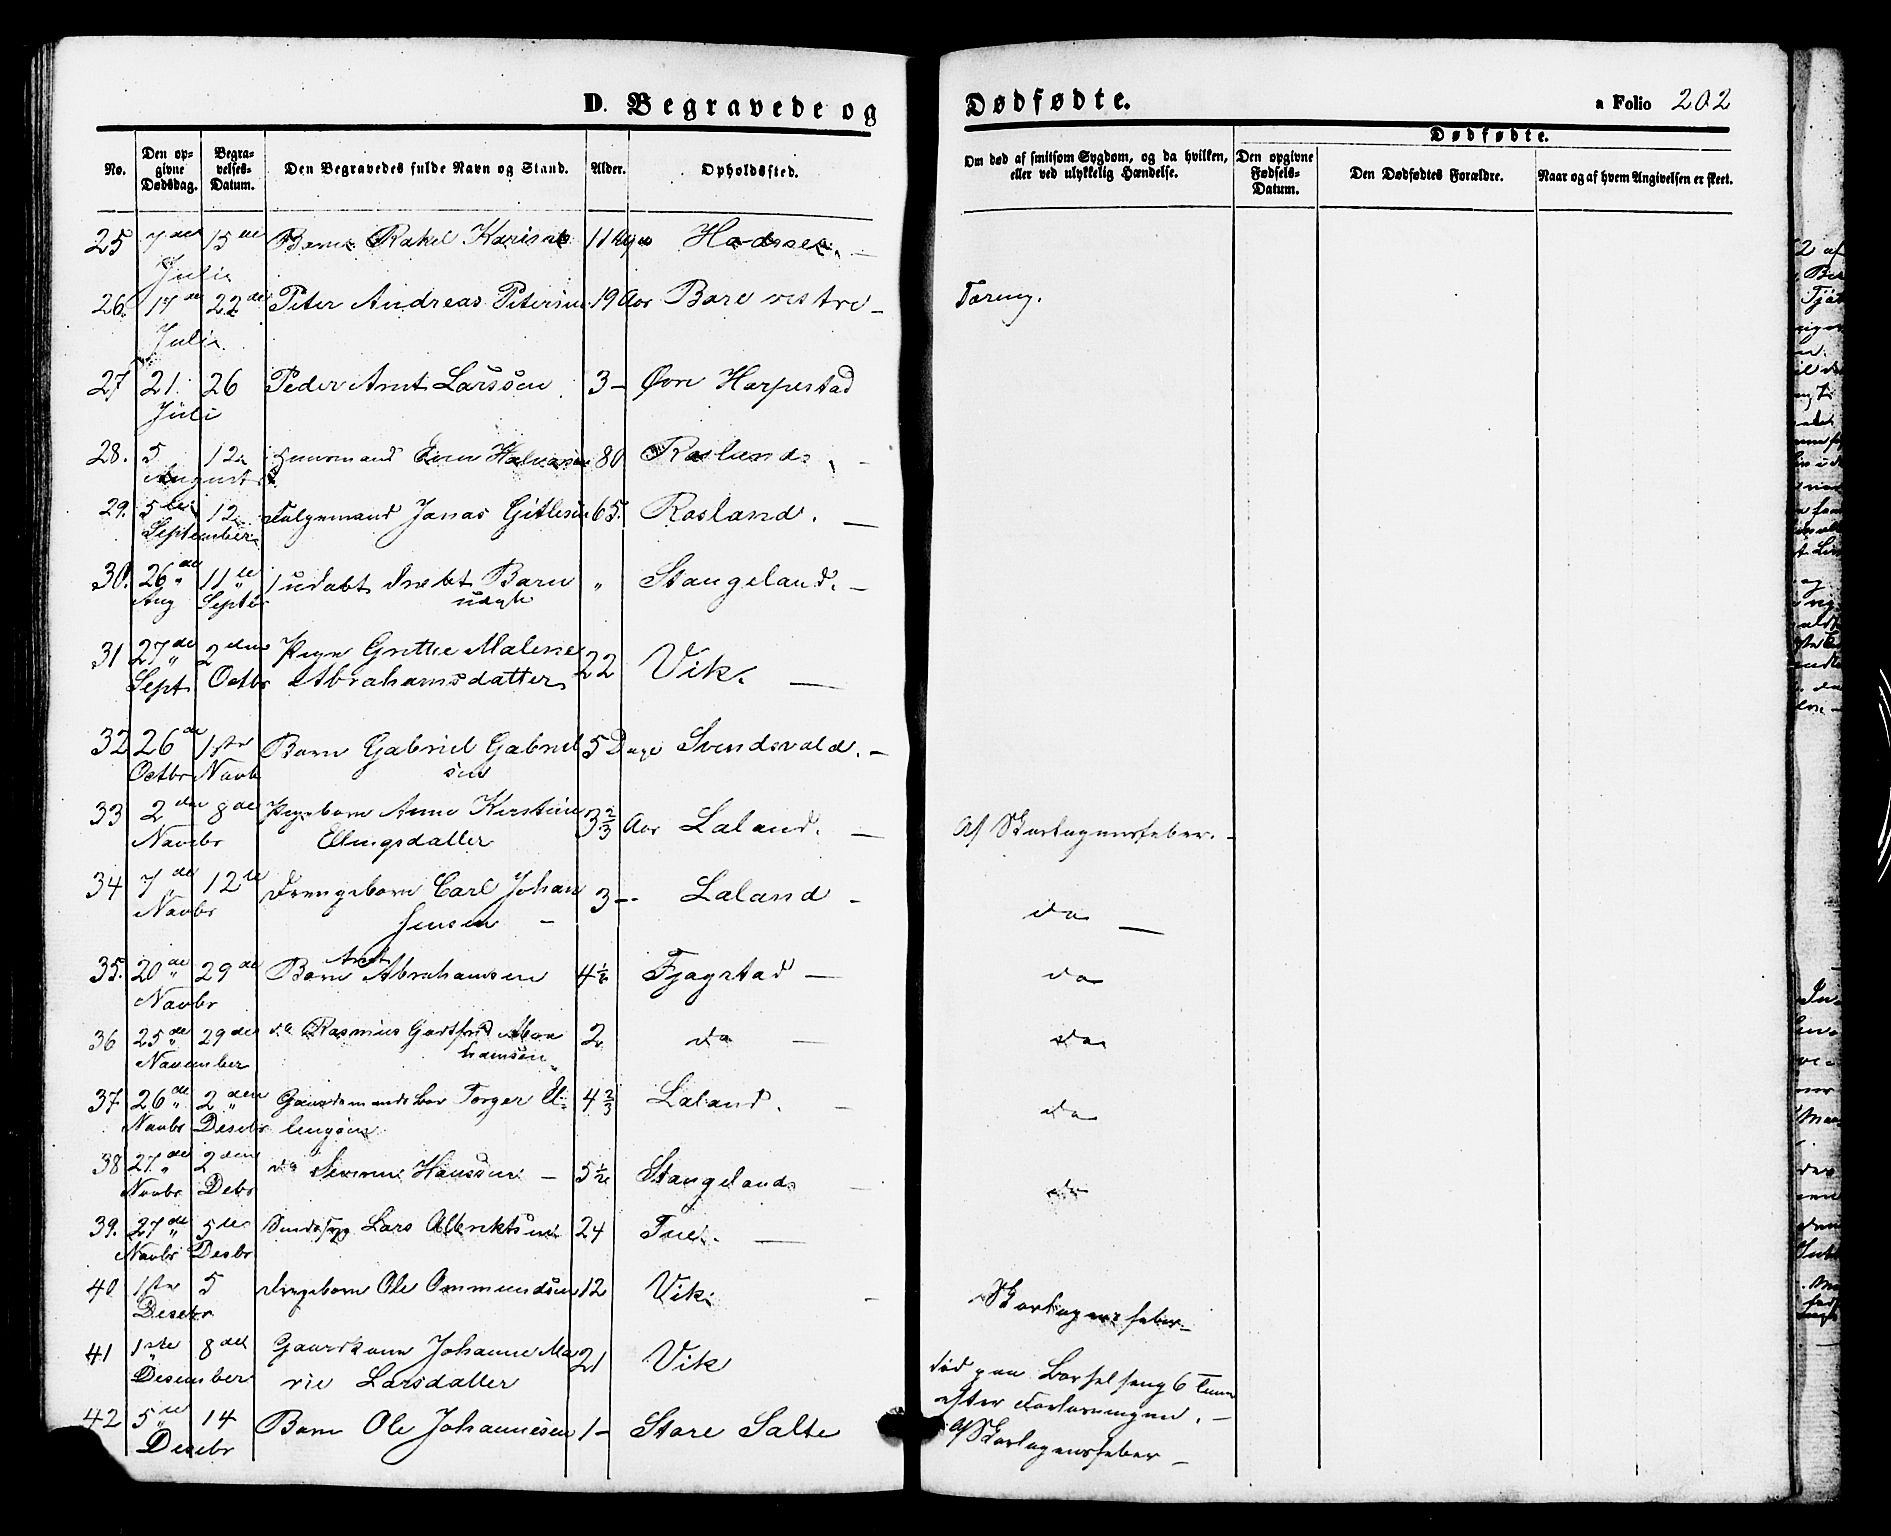 D. Begravede og Dødfødte.
a Folio 202
Dødfødte.
No.
Den op-
givne
Dødsdag.
Begra-
velses-
Datum.
Den Begravedes fulde Navn og Stand.
Alder.
Opholdssted.
Om død af smitsom Sygdom, og da hvilken,
eller ved ulykkelig Hændelse.
Den opgivne
Fødsels-
Datum.
Den Dødfødtes Forældre.
Naar og af hvem Angivelsen er skeet.
25 7de 15de Barn Rakel 11
Juli
26. 17de 22de Peter Andreas Petersen 19 Aar Bore vestre
Tæring.
Juli
27 21. 26 Peder Arnt Larssen 3 – Øvre Harpestad
Juli
28. 5 12 Huusmand 80 Roslund
August
29. 5te 12 Jonas Gitlesen 65. Rosland.
September
30. 26de 11te 1 udøbt Barn " Stangeland.
Aug Septbr
31 27de 2den Pige Grethe Malene 22 Vik.
Sept. Octbr Abrahamsdatter
32 26de 1ste Barn Gabriel Gabriel 5 Dage Svendsvold.
Octbr Novb sen
33 2den 8de Pigebarn Anne Kirstine 3 2/3 Aar Laland.
Af Skarlagensfeber.
Novbr Ellingsdatter
34 7de 12te Drengebarn Carl Johan 3 – Laland
do
Novbr Jensen
35. 20de 29de Barn Arnt Abrahamsen 4 Fjogstad
do
Novbr
36 25de 29de do Rasmus Gotfred Abra 2 do
do
November hamsen
37 26de 2den Gaardmands Torger El- 4 2/3 Laland.
do
Novbr Desebr lingsen
38 27de 2den do Severine Hanssen 5 1/2 Stangeland
do
Novbr Debr
39. 27de 5te Lars Albriktsen 24 Tue.
Novbr Desbr
40 1ste 5 Drengebarn Ole Ommundsen 12 Vik
Skarlagensfeber
Desebr
41 1ste 8de Gaardkone Johanne Ma 21 Vik
død paa Barselseng 6 Timer
Desember rie Larsdatter
efter Forløsningen.
42 5te 14 Barn Ole Johannesen 1 – Store Salte
Af Skarlagensfeber
Desebr